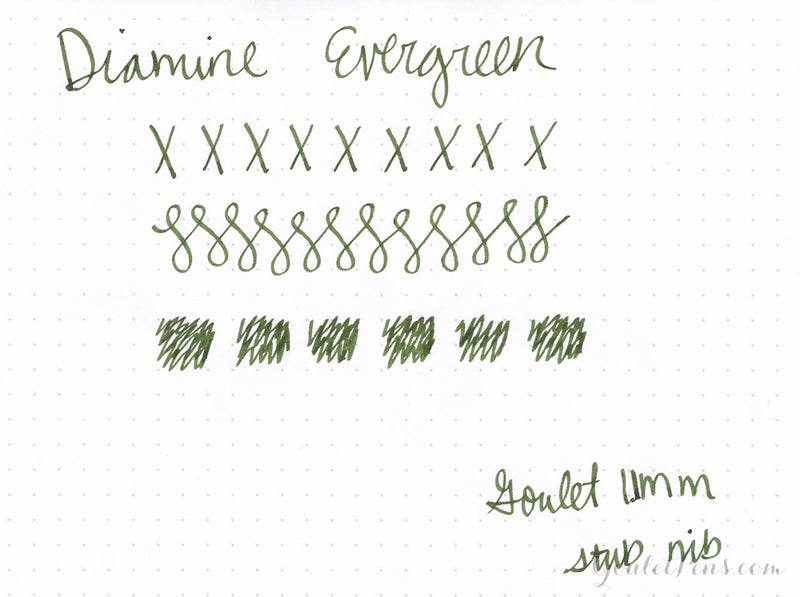 Diamine Evergreen
X X X X X X X X X
Goulet 1.1mm
stub nib
GouletPens.com